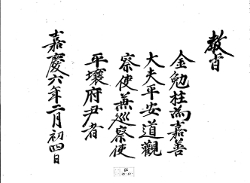 教旨
金勉柱爲嘉善
大夫平安道觀
察使兼巡察使
平壤府尹者
嘉慶六年二月初四日